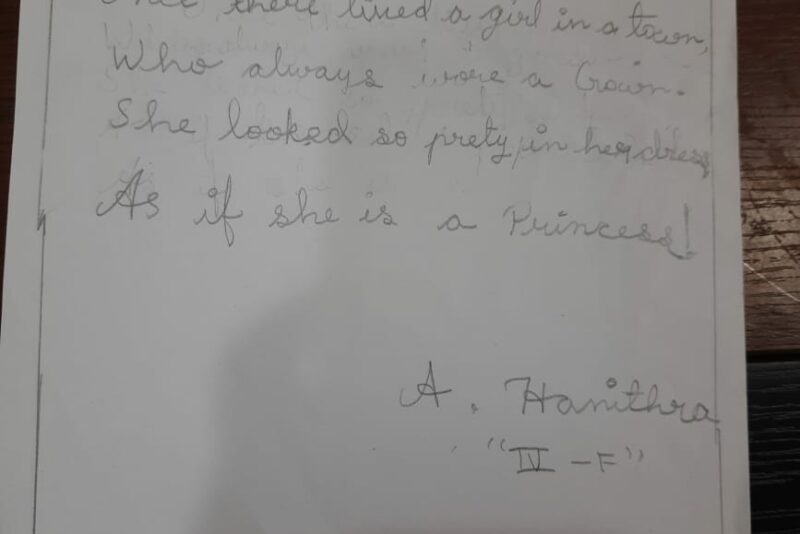 Once there lived a girl in a town,
Who always wore a Crown.
She looked so prety in her dress,
As if she is a Princess!
A. Hanithra
"IV - F"